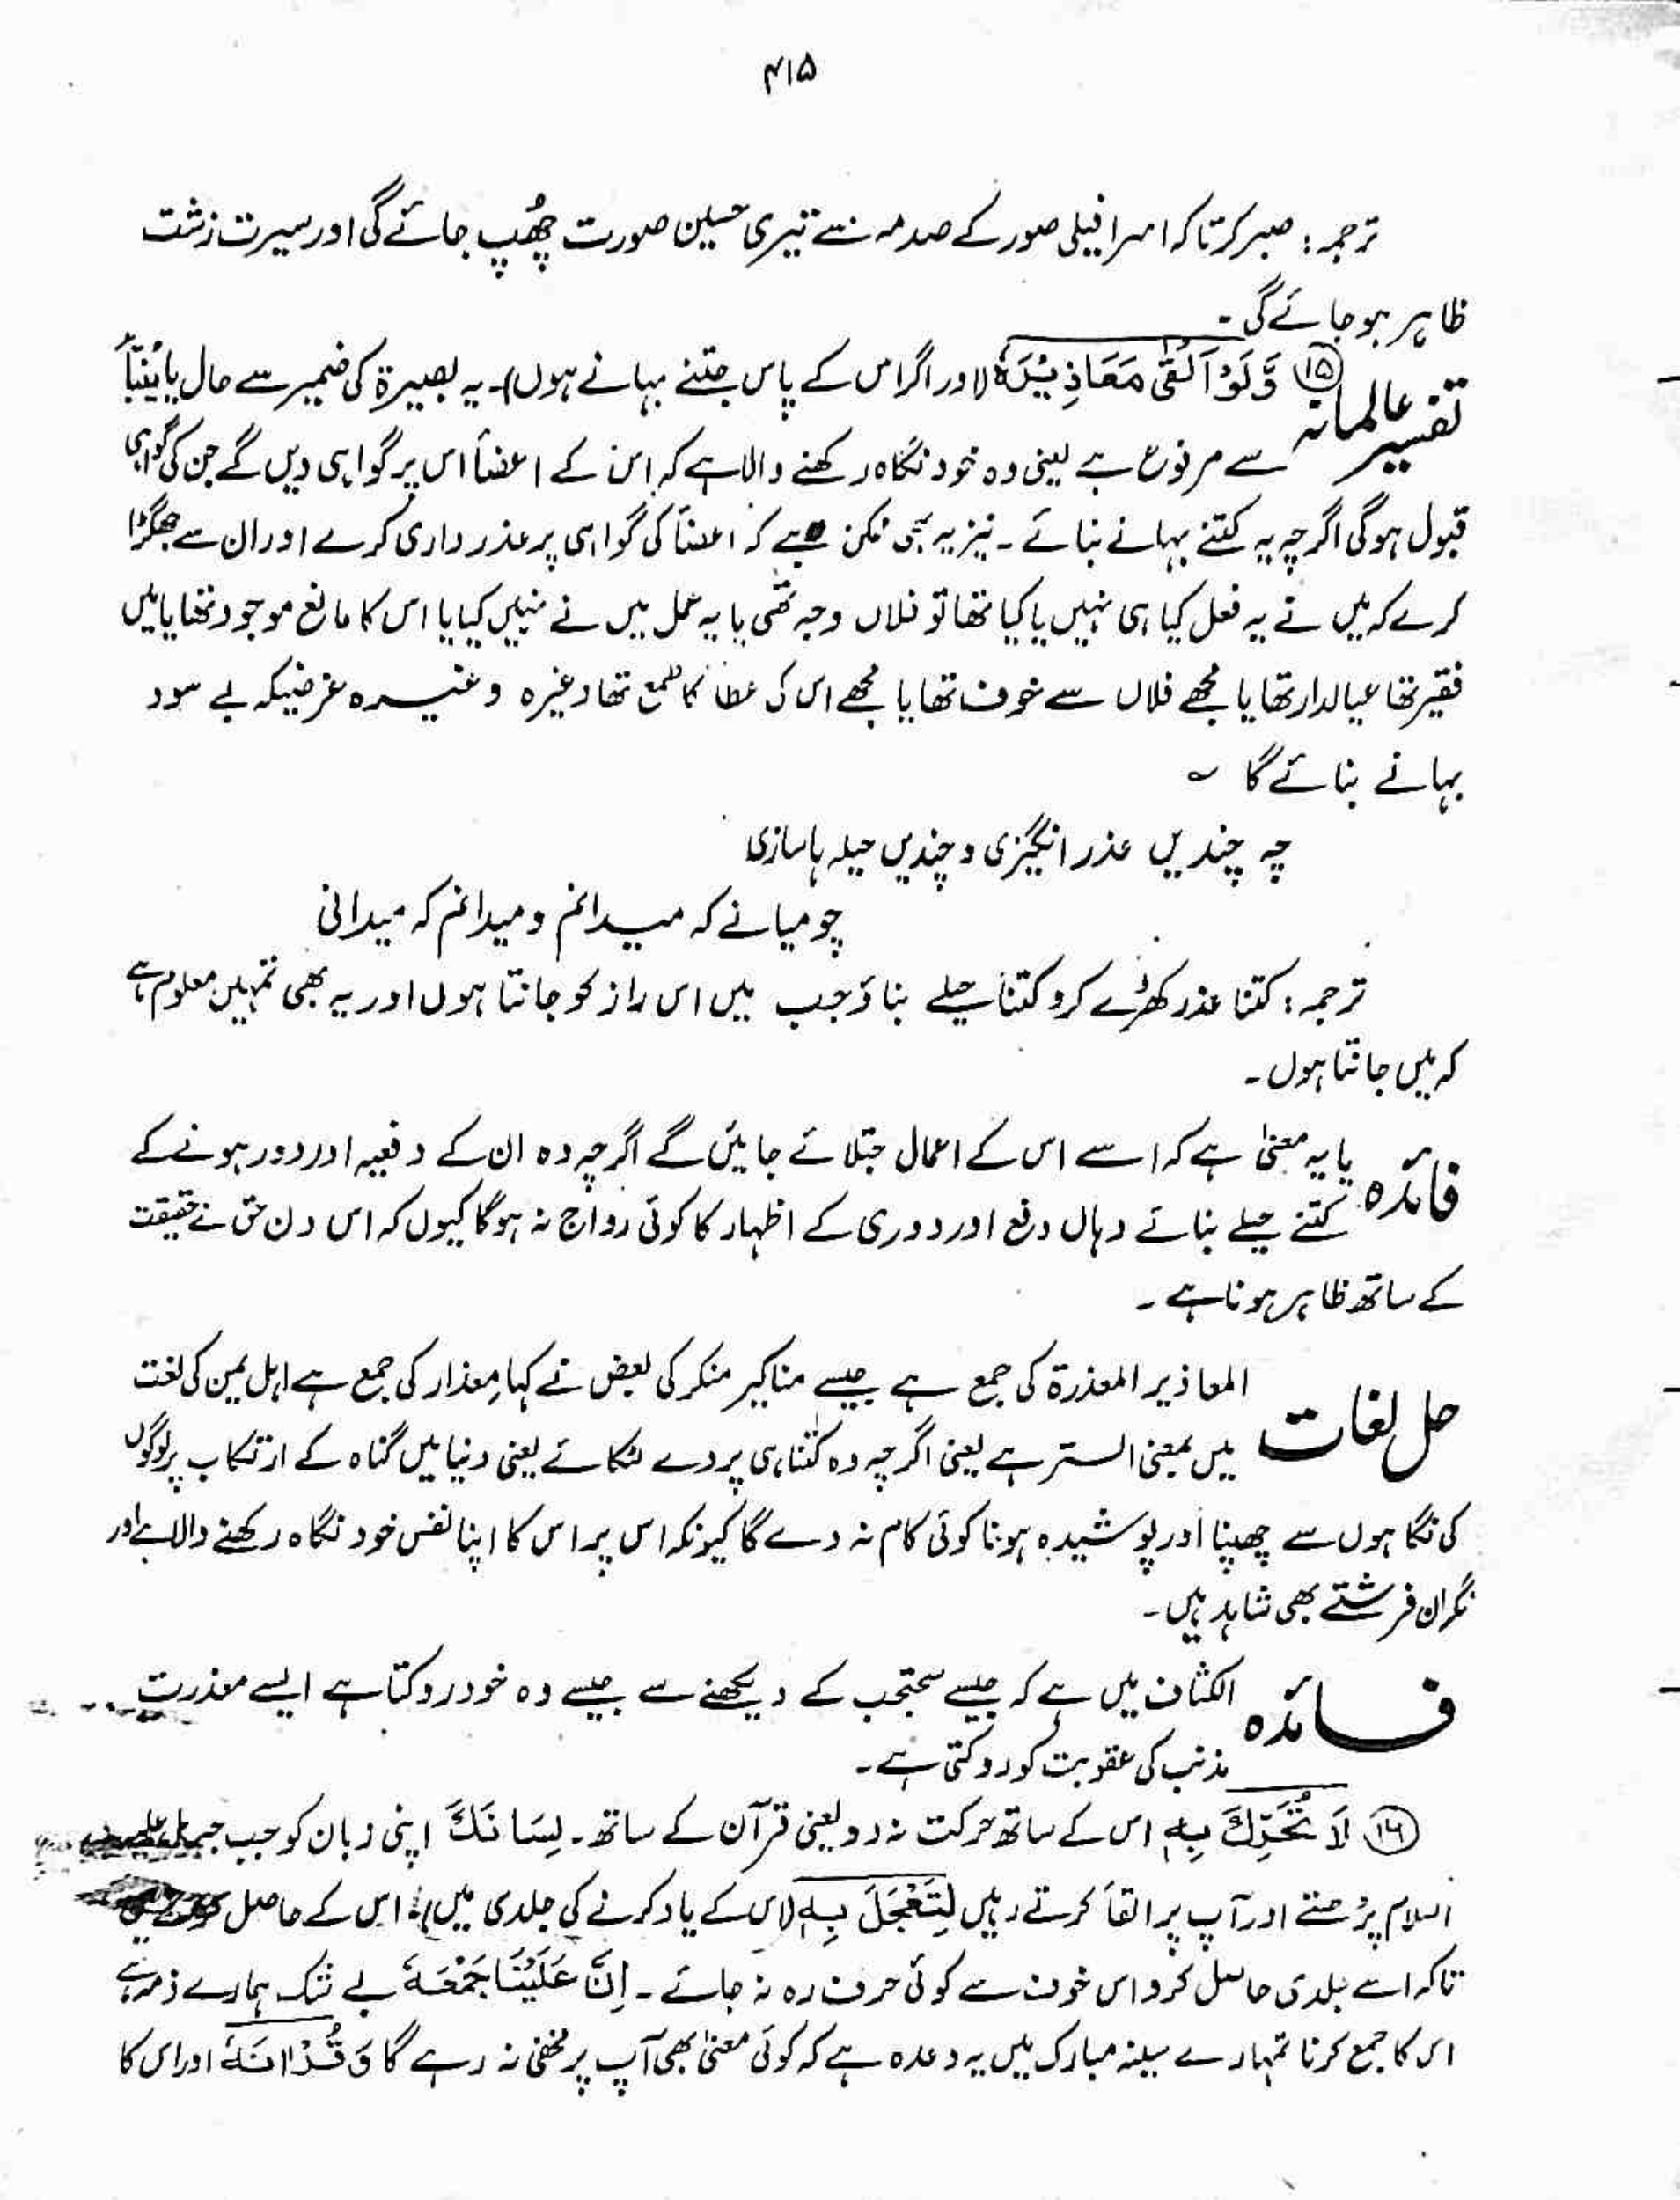 ۴۱۵
ترجمہ: صبر کر تاکہ اسرافیلی صور کے صدمہ سے تیری حسین صورت چھُپ جائے گی اور سیرت زشت
ظاہر ہو جائے گی۔
تفسیر عالمانہ ⑮ وَّلَوْ اَلْقٰی مَعَاذِیْرَہٗ (اور اگر اس کے پاس جتنے بہانے ہوں)۔ یہ بصیرۃ کی ضمیر سے حال یا یُنَبَّأُ
سے مرفوع ہے یعنی وہ خود نگاہ رکھنے والا ہے کہ اس کے اعضأ اس پر گواہی دیں گے جن کی گواہی
قبول ہوگی اگرچہ یہ کتنے بہانے بنائے۔ نیز یہ بھی ممکن ہے کہ اعضأ کی گواہی پر عذر داری کرے اور ان سے جھگڑا
کرے کہ میں نے یہ فعل کیا ہی نہیں یا کیا تھا تو فلاں وجہ تھی یا یہ عمل میں نے نہیں کیا یا اس کا مانع موجود تھا یا میں
فقیر تھا عیالدار تھا یا مجھے فلاں سے خوف تھا یا مجھے اس کی عطا کا طمع تھا وغیرہ وغیرہ غرضیکہ بے سود
بہانے بنائے گا ؎
چہ چندیں عذر انگیزی و چندیں حیلہ ہا سازی
چو میانے کہ میدانم و میدانم کہ میدانی
ترجمہ: کتنا عذر کھڑے کرو کتنا حیلے بناؤ جب میں اس راز کو جانتا ہوں اور یہ بھی تمہیں معلوم ہے
کہ میں جانتا ہوں۔
فائدہ یا یہ معنیٰ ہے کہ اسے اس کے اعمال جتلائے جائیں گے اگرچہ وہ ان کے دفعیہ اور دور ہونے کے
کتنے حیلے بنائے وہاں دفع اور دوری کے اظہار کا کوئی رواج نہ ہوگا کیوں کہ اس دن حق نے حقیقت
کے ساتھ ظاہر ہونا ہے۔
حل لغات المعاذیر المعذرۃ کی جمع ہے جیسے مناکیر منکر کی بعض نے کہا معذار کی جمع ہے اہل یمن کی لغت
میں بمعنی الستر ہے یعنی اگرچہ وہ کتنا ہی پردے لٹکائے یعنی دنیا میں گناہ کے ارتکاب پر لوگوں
کی نگاہوں سے چھپنا اور پوشیدہ ہونا کوئی کام نہ دے گا کیونکہ اس پر اس کا اپنا نفس خود نگاہ رکھنے والا ہے اور
نگران فرشتے بھی شاہد ہیں۔
فائدہ الکشاف میں ہے کہ جیسے محتجب کے دیکھنے سے جیسے وہ خود روکتا ہے ایسے معذرت
مذنب کی عقوبت کو روکتی ہے۔
⑯ لَا تُحَرِّكْ بِہٖ اس کے ساتھ حرکت نہ دو یعنی قرآن کے ساتھ۔ لِسَانَكَ اپنی زبان کو جب
السلام پڑھتے اور آپ پر القأ کرتے رہیں لِتَعْجَلَ بِہٖ (اس کے یاد کرنے کی جلدی میں)؛ اس کے حاصل
تاکہ اسے جلدی حاصل کرو اس خوف سے کوئی حرف رہ نہ جائے۔ اِنَّ عَلَیْنَا جَمْعَہٗ بے شک ہمارے ذمہ ہے
اس کا جمع کرنا تمہارے سینہ مبارک میں یہ وعدہ ہے کہ کوئی معنیٰ بھی آپ پر مخفی نہ رہے گا وَ قُرْاٰنَہٗ اور اس کا